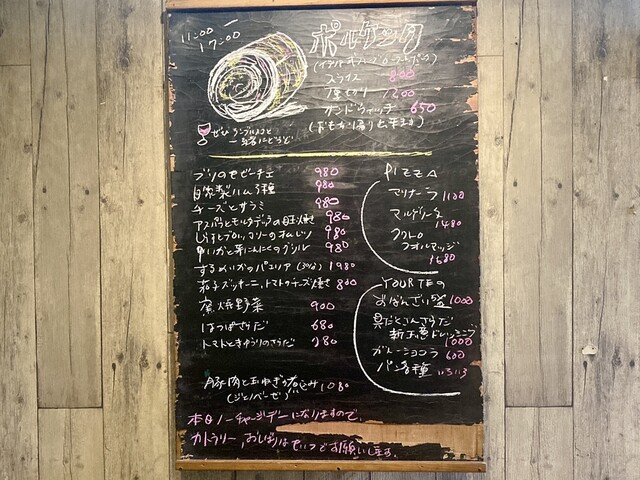 11:00
17:00
ポルケッタ
(イタリアオーブンローストポーク)
スライス 800
厚切り 1200
サンドウィッチ 650
(おもち帰り出来ます)
ぜひ ランブルスコと
一緒にどうぞ
ブリのセビーチェ 980
自家製ハム3種 980
チーズとサラミ 980
アスパラとモルタデッラの目玉焼き 980
しらすとブロッコリーのオムレツ 980
やりいかと芽にんにくのグリル 980
するめいかのパエリア 1980
茄子ズッキーニ、トマトのチーズ焼き 800
窯焼野菜 900
はっぱさらだ 680
トマトときゅうりのさらだ 380
豚肉と玉ねぎの煮込み 1080
(ジェノベーゼ)
PIZZA
マリナーラ 1100
マルゲリータ 1480
クワトロ
フォルマッジ 1680
YOURTEの
おばんざい5盛 1000
具だくさんさらだ
新玉葱ドレッシング 1000
ガトーショコラ 600
パン各種 いろいろ
本日ノーチャージデーになりますので、
カトラリー、おしぼりはセルフでお願いします。